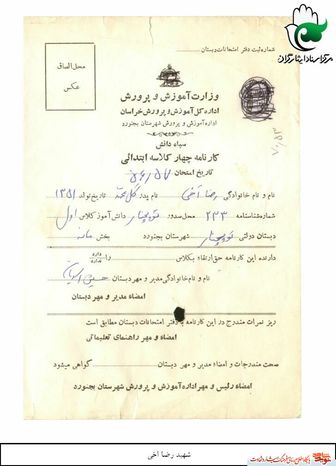 مرکز اسناد ایثارگران
شماره ثبت دفتر امتحانات دبستان
محل الصاق
عکس
وزارت آموزش و پرورش
اداره کل آموزش و پرورش خراسان
اداره آموزش و پرورش شهرستان بجنورد
سپاه دانش
کارنامه چهار کلاسه ابتدائی
تاریخ امتحان
نام و نام خانوادگی رضا اخی نام پدر تاریخ تولد ۱۳۵۱
شماره شناسنامه ۲۳۳ محل صدور دانش آموز کلاس اول
دبستان دولتی شهرستان بجنورد بخش مانه
دارنده این کارنامه حق ارتقاء بکلاس
نام و نام خانوادگی مدیر و مهر دبستان
امضاء مدیر و مهر دبستان
ریز نمرات مندرج در این کارنامه با دفتر امتحانات دبستان مطابق است
امضاء و مهر راهنمای تعلیماتی
صحت مندرجات و امضاء مدیر و مهر دبستان گواهی میشود
امضاء رئیس و مهر اداره آموزش و پرورش شهرستان بجنورد
شهید رضا اخی